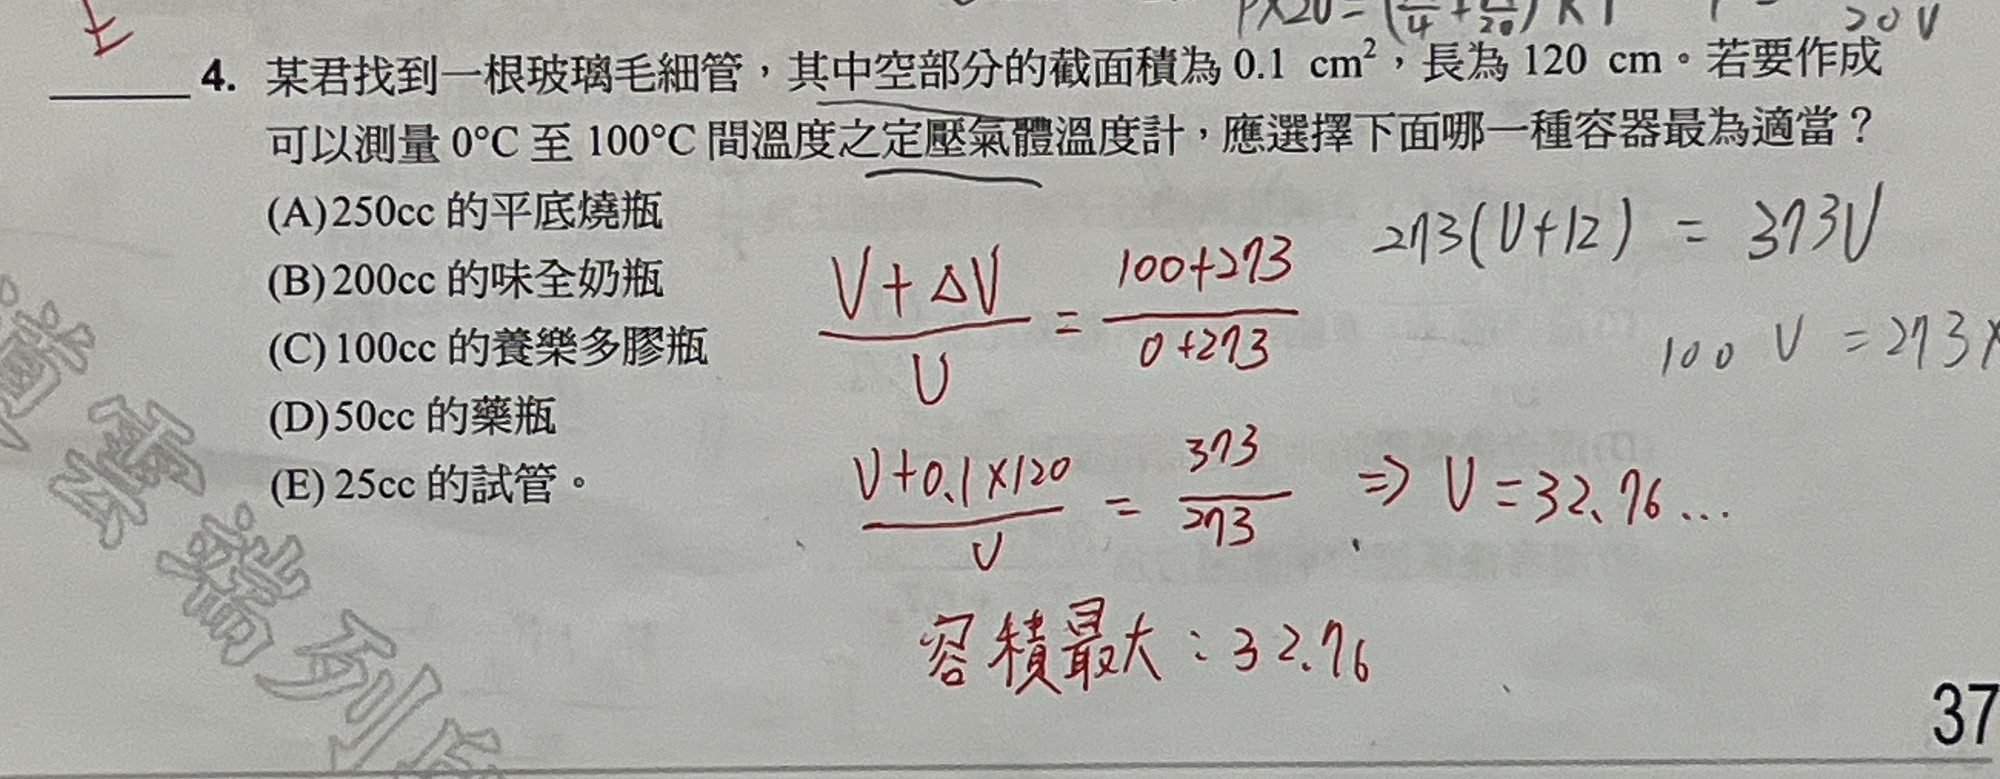 E
P×20=(
20V
4. 某君找到一根玻璃毛細管，其中空部分的截面積為 0.1 cm²，長為 120 cm。若要作成
可以測量 0°C 至 100°C 間溫度之定壓氣體溫度計，應選擇下面哪一種容器最為適當？
(A)250cc 的平底燒瓶
(B)200cc 的味全奶瓶
(C)100cc 的養樂多膠瓶
(D)50cc 的藥瓶
(E)25cc 的試管。
V+ΔV / V = 100+273 / 0+273
V+0.1×120 / V = 373 / 273 ⇒ V=32.76...
容積最大：32.76
273(V+12) = 373V
100 V = 273×
雲端列
37